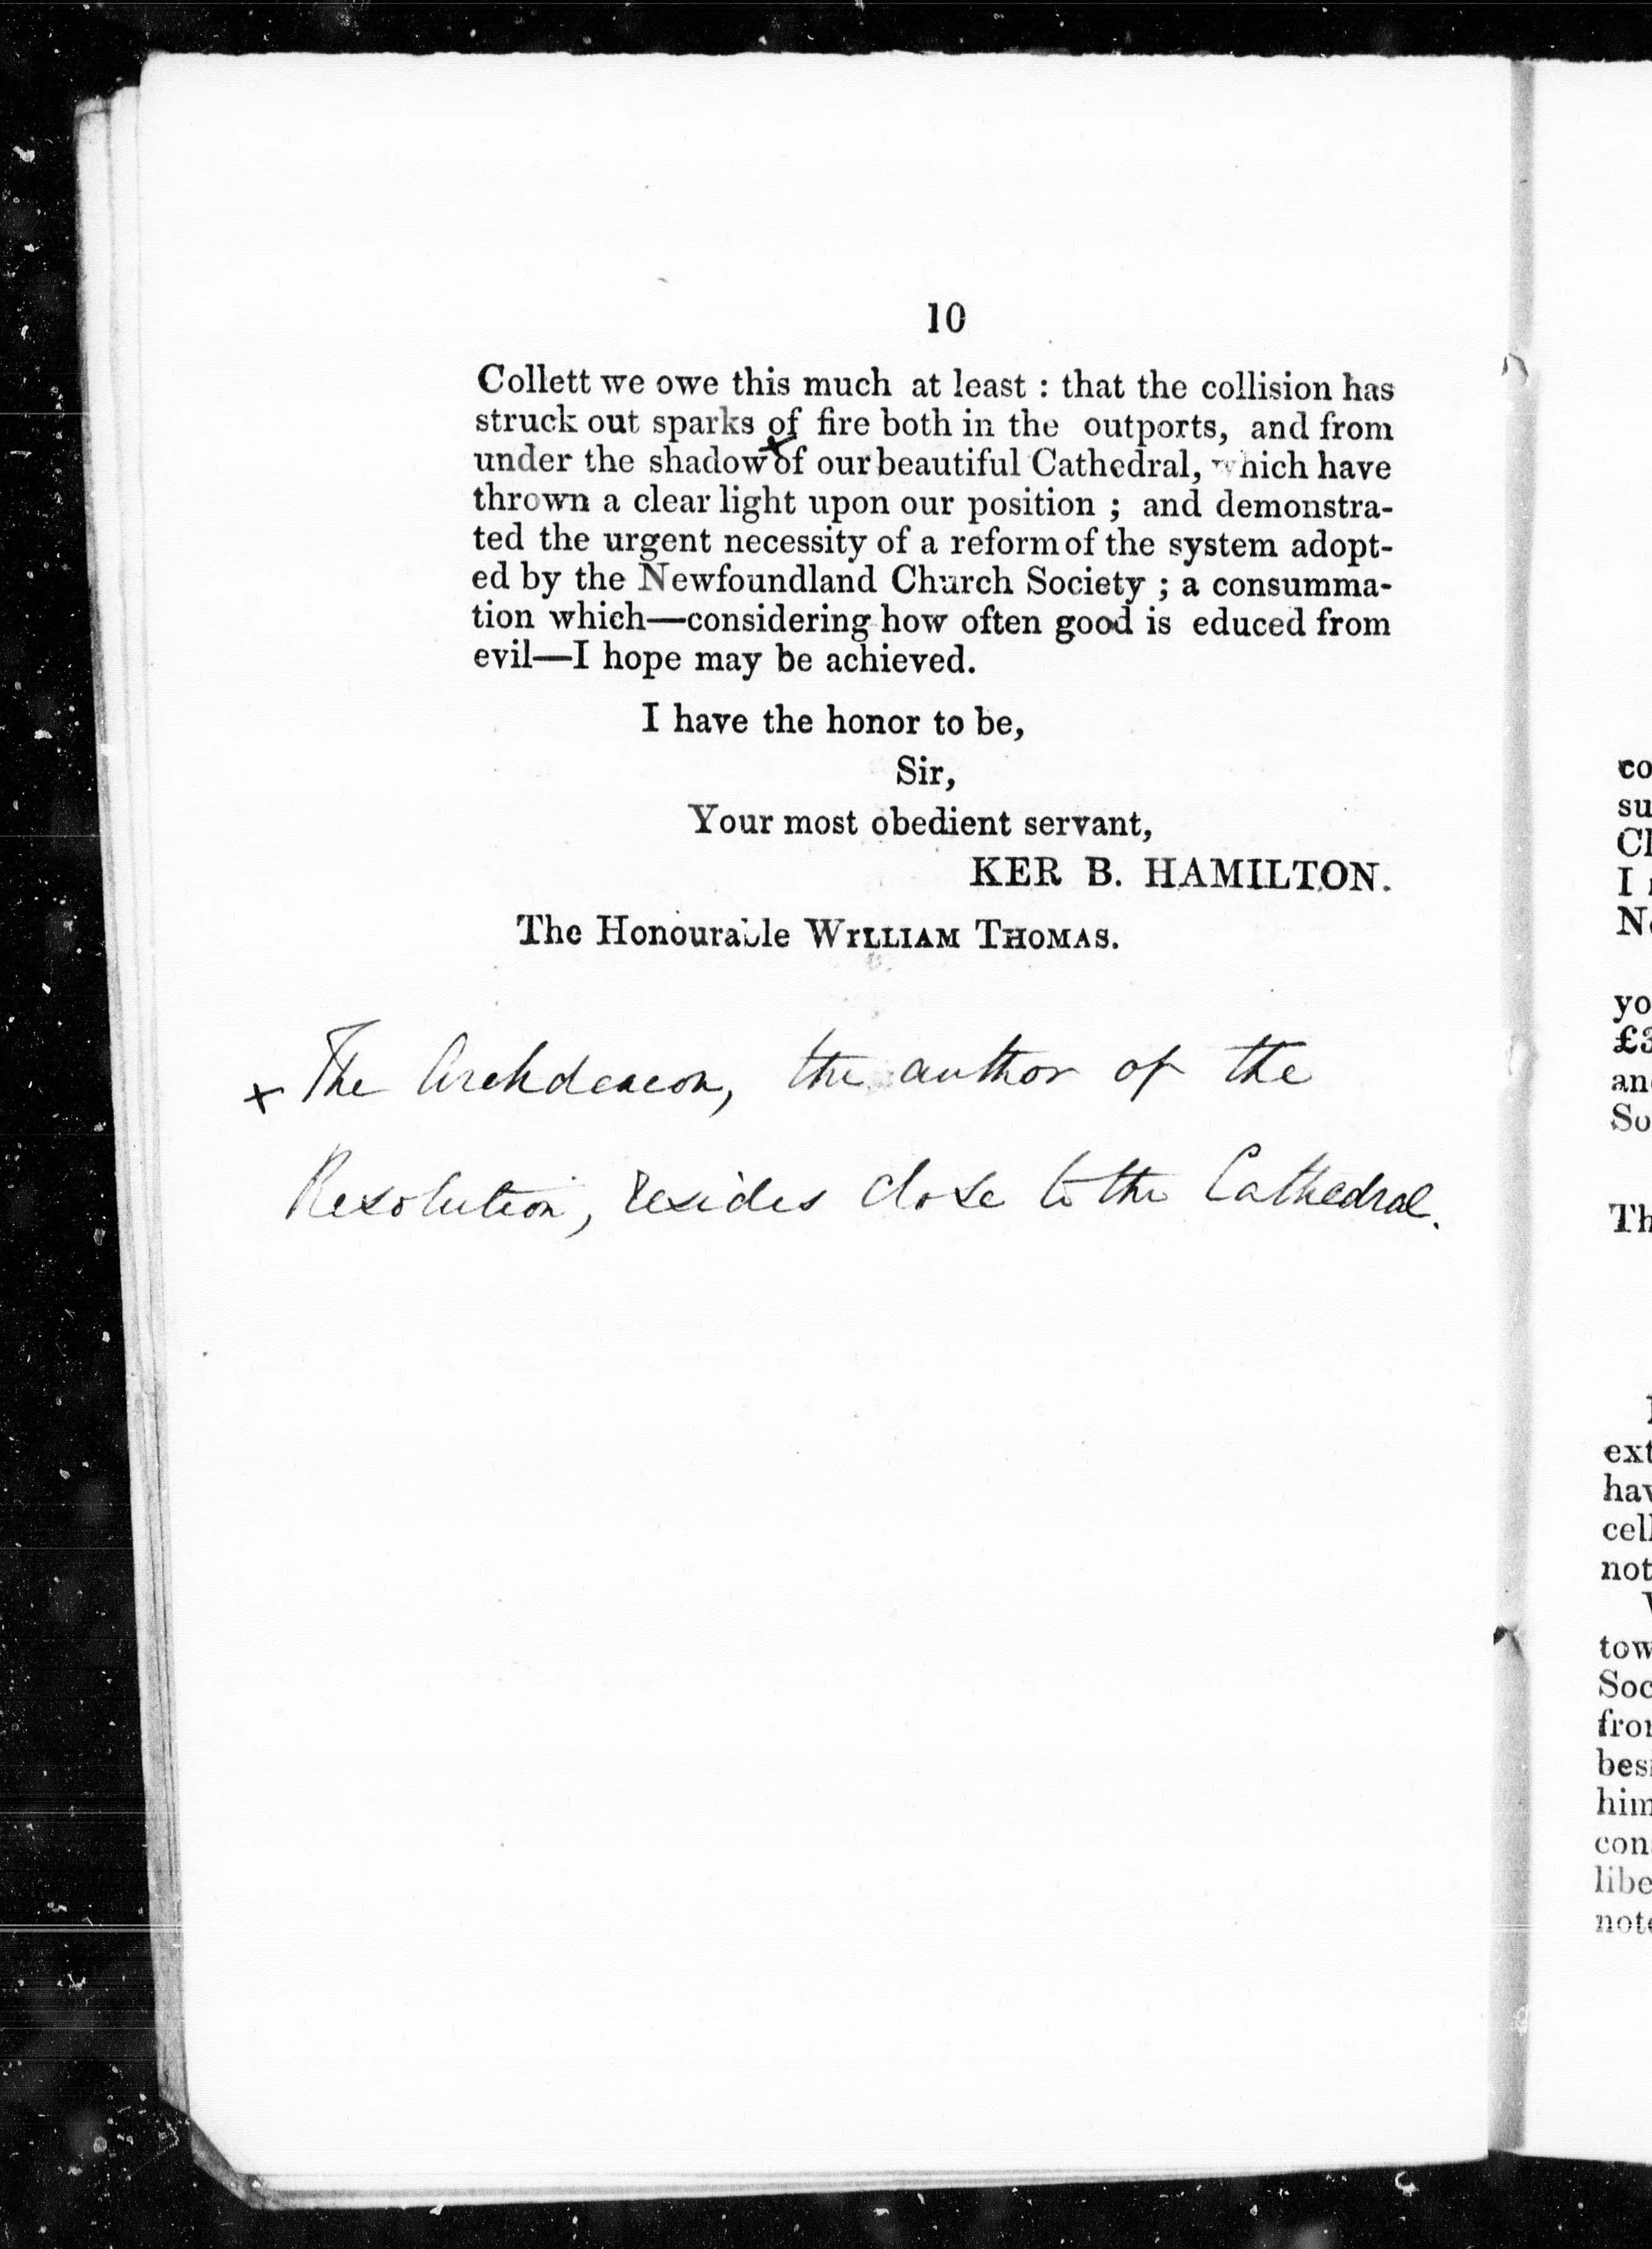 10
Collett we owe this much at least : that the collision has
struck out sparks of fire both in the outports, and from
under the shadow x of our beautiful Cathedral, which have
thrown a clear light upon our position ; and demonstra-
ted the urgent necessity of a reform of the system adopt-
ed by the Newfoundland Church Society ; a consumma-
tion which—considering how often good is educed from
evil—I hope may be achieved.
I have the honor to be,
Sir,
Your most obedient servant,
KER B. HAMILTON.
The Honourable WILLIAM THOMAS.
x The Archdeacon, the author of the
Resolution, resides close to the Cathedral.
co
su
Cl
I
No
yo
£3
an
So
Th
ext
hav
cell
not
tow
Soc
from
besi
him
con
libe
note